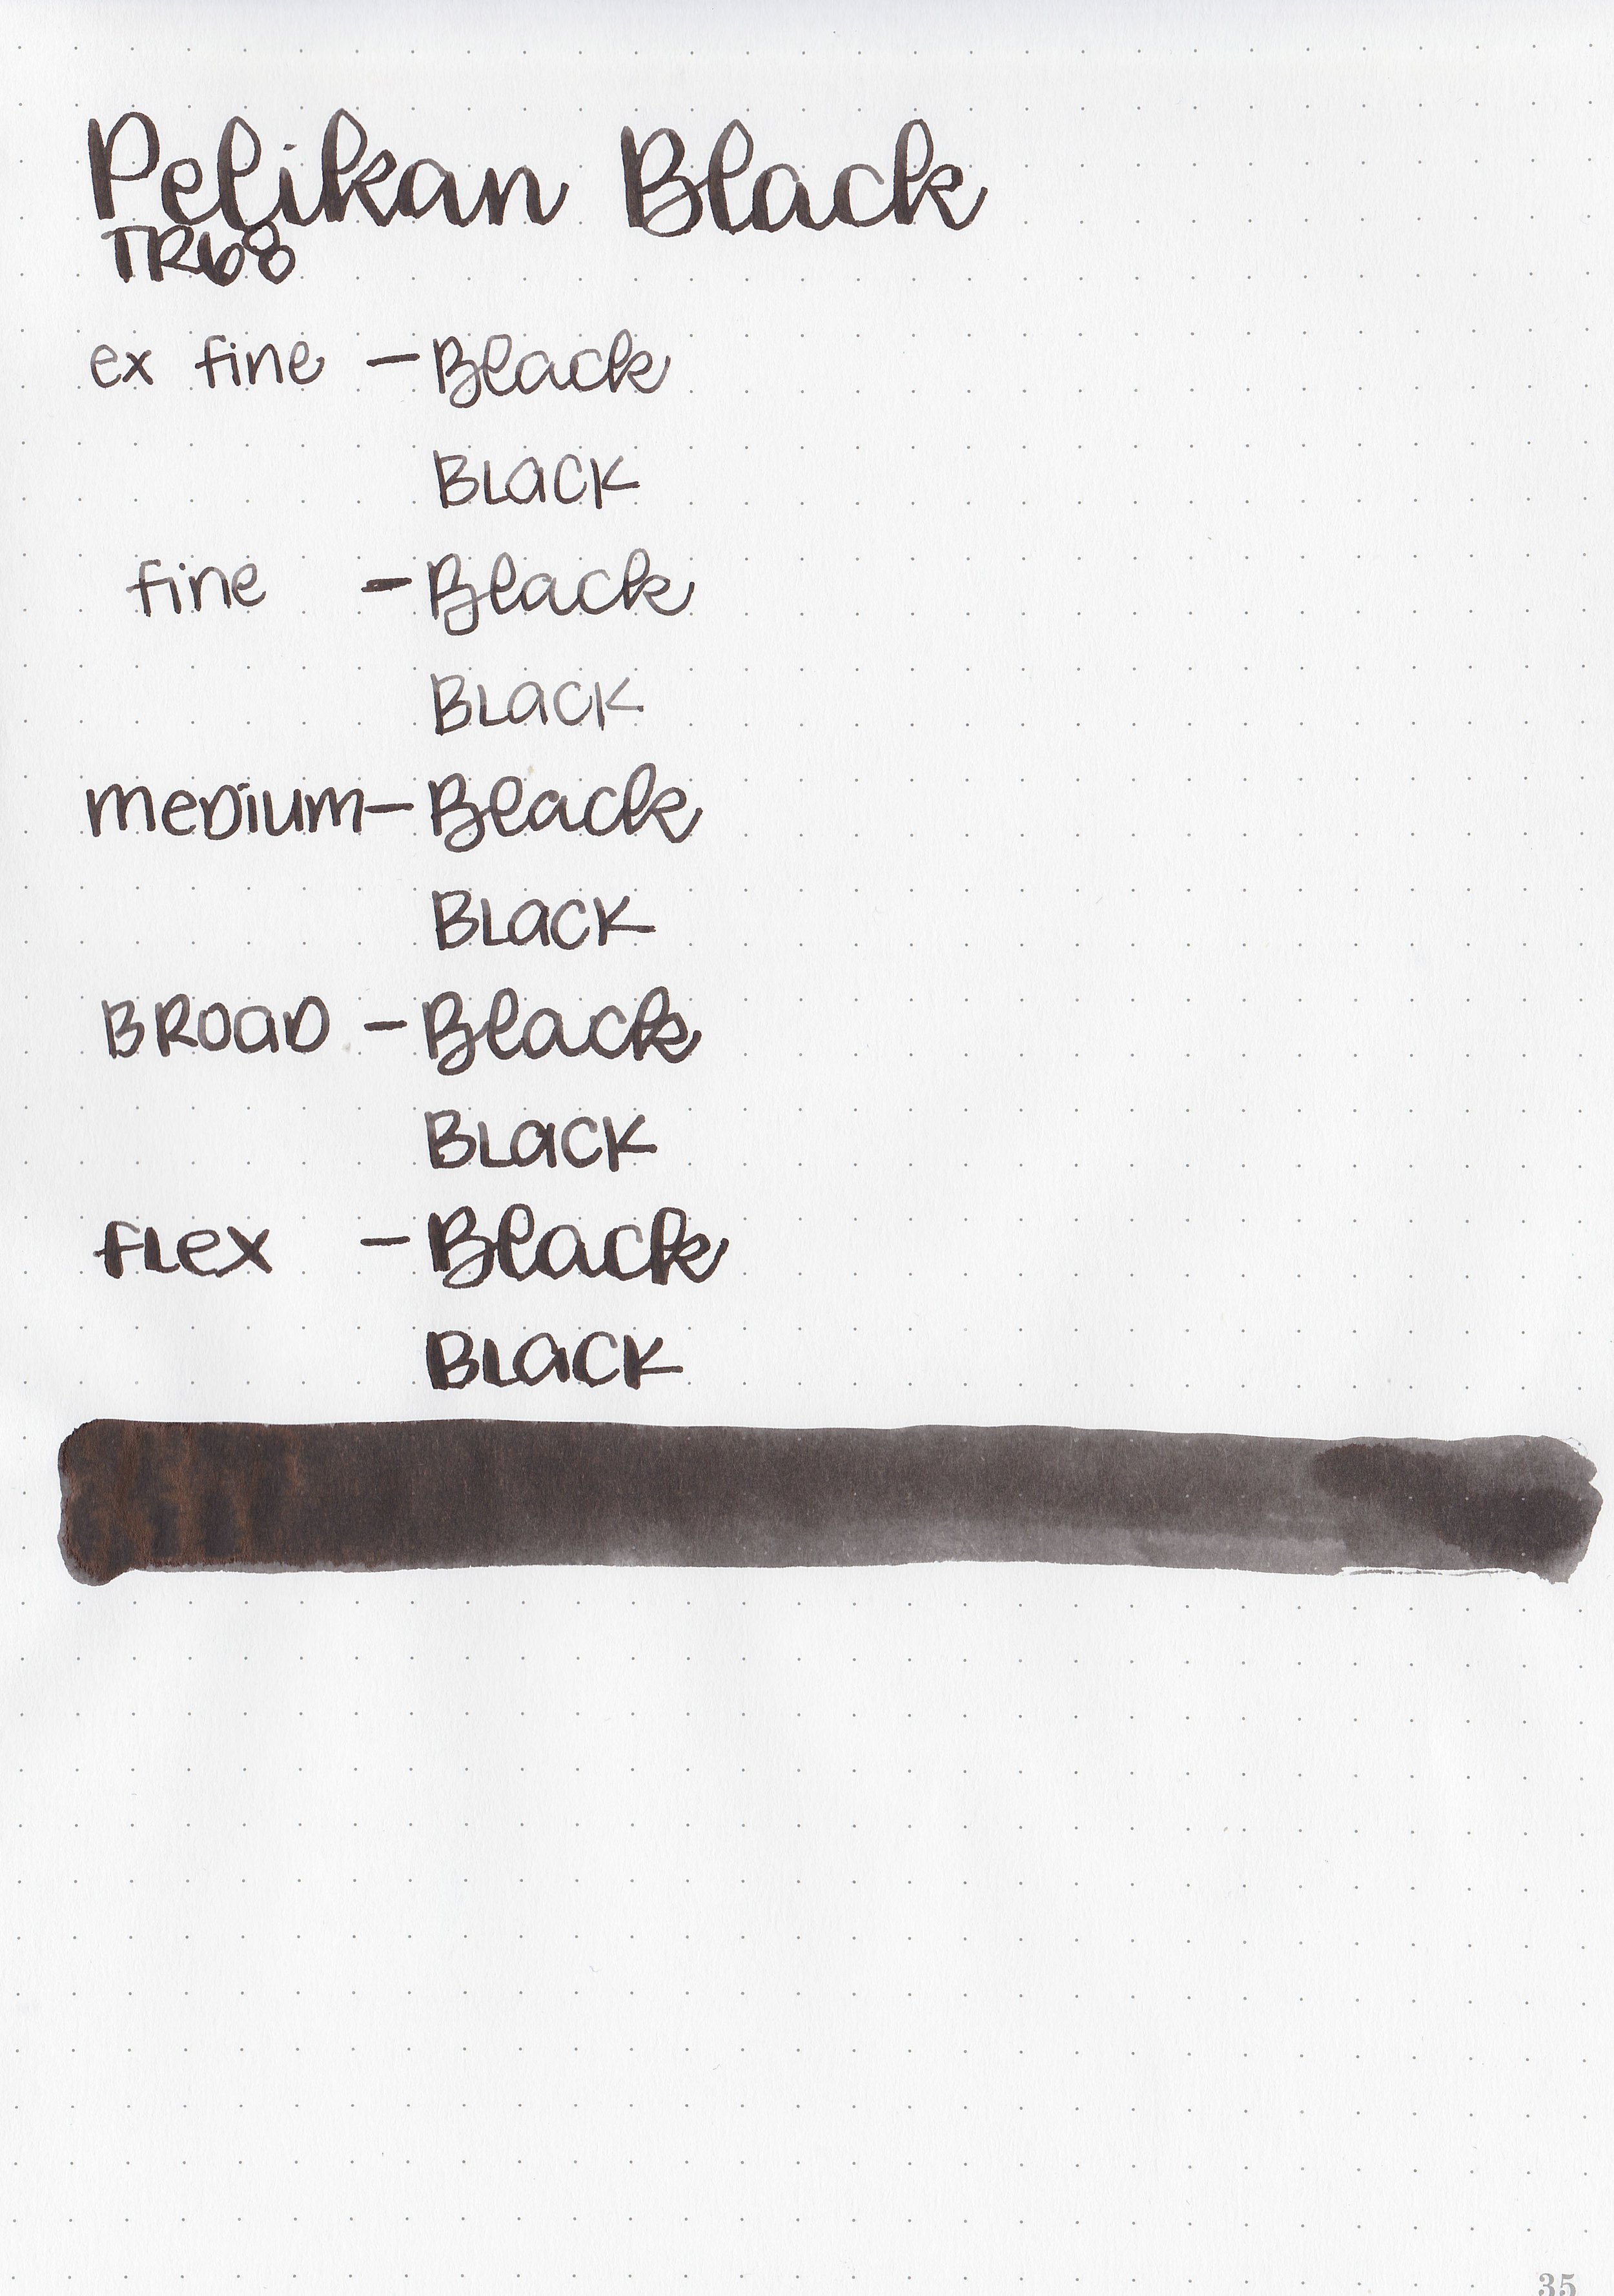 Pelikan Black
TR68
ex fine - Black
BLACK
fine - Black
BLACK
medium - Black
BLACK
BROAD - Black
BLACK
flex - Black
BLACK
35